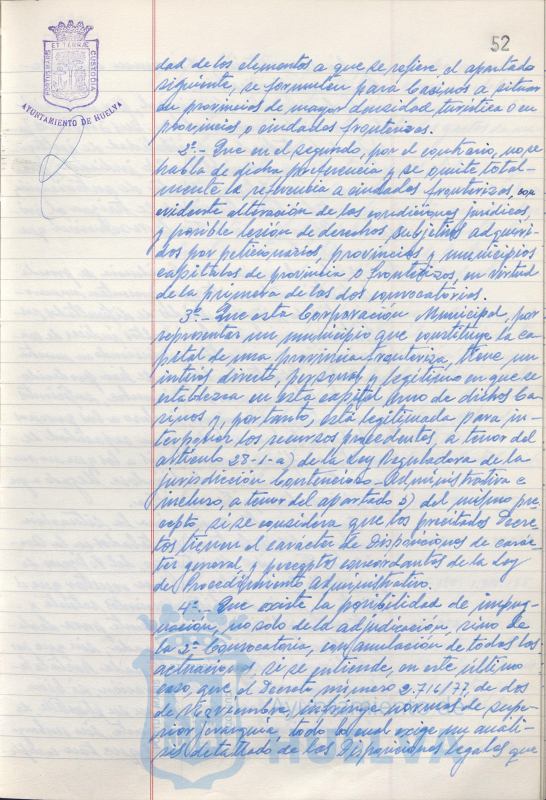 52
PORTUS MARIS ET TERRAE CUSTODIA
AYUNTAMIENTO DE HUELVA
dad de los elementos a que se refiere el apartado
siguiente, se formulen para Casinos a situar
en provincias de mayor densidad turística o en
provincias o ciudades fronterizas.
2º.- Que en el segundo, por el contrario, no se
habla de dicha preferencia y se omite total-
mente la referencia a ciudades fronterizas, con
evidente alteración de las condiciones jurídicas,
y posible lesión de derechos subjetivos adquiri-
dos por peticionarios, provincias y municipios
capitales de provincia o fronterizos, en virtud
de la primera de las dos convocatorias.
3º.- Que esta Corporación Municipal, por
representar un municipio que constituye la ca-
pital de una provincia fronteriza, tiene un
interés directo, personal y legítimo en que se
establezca en esta capital uno de dichos Ca-
sinos y, por tanto, está legitimada para in-
terponer los recursos procedentes, a tenor del
artículo 28-1-a) de la Ley Reguladora de la
jurisdicción Contencioso-Administrativa e
incluso, a tenor del apartado b) del mismo pre-
cepto, si se considera que los precitados Decre-
tos tienen el carácter de Disposiciones de carác-
ter general, y preceptos concordantes de la Ley
de Procedimiento Administrativo.
4º.- Que existe la posibilidad de impug-
nación, no solo de la adjudicación, sino de
la 2ª Convocatoria, con anulación de todas las
actuaciones, si se entiende, en este último
caso, que el Decreto número 2.716/77, de dos
de Noviembre, infringe normas de supe-
rior jerarquía, todo lo cual exige un análi-
sis detallado de las Disposiciones legales que
HUELVA